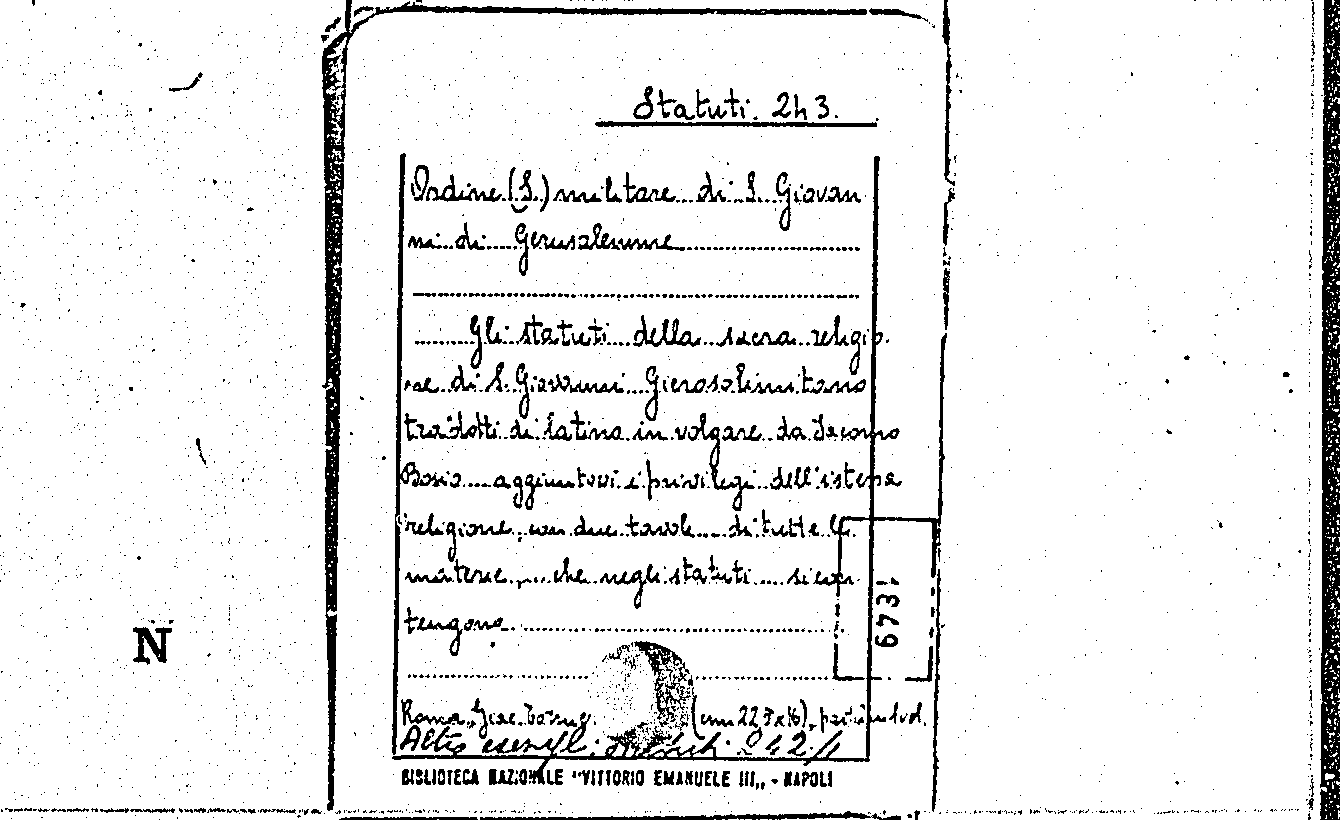 Statuti. 243.
Ordine (S.) militare di S. Giovan
ni di Gerusalemme
Gli statuti della sacra religio
ne di S. Giovanni Gierosolimitano
tradotti di latino in volgare da Iacomo
Bosio aggiuntovi i privilegi dell'istessa
religione, con due tavole di tutte le
materie, che negli statuti si con
tengono.
6731
N
Roma, Giac.
Altro
BIBLIOTECA NAZIONALE "VITTORIO EMANUELE III,, - NAPOLI